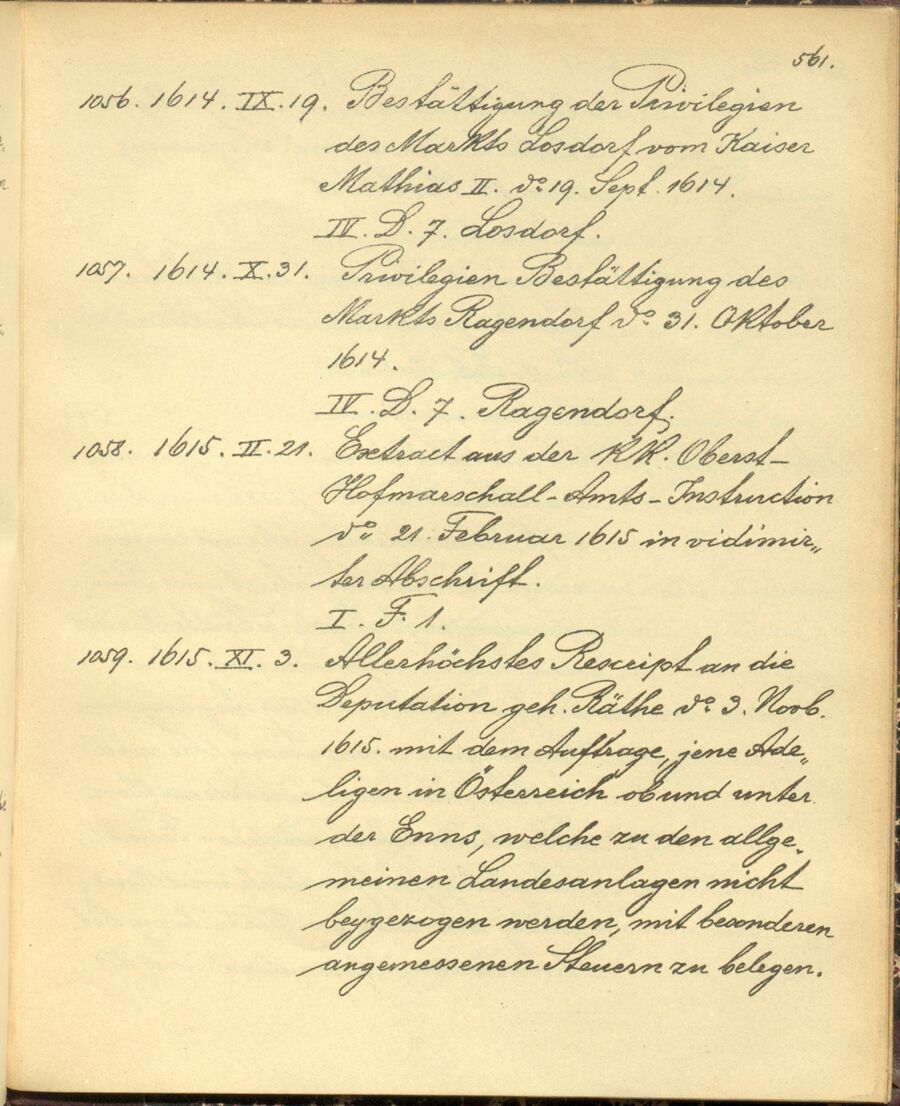 561.
1056. 1614. IX. 19. Bestättigung der Privilegien
des Markts Losdorf vom Kaiser
Mathias II. do 19. Sept. 1614.
IV. D. 7. Losdorf.
1057. 1614. X. 31. Privilegien Bestättigung des
Markts Ragendorf do 31. Oktober
1614.
IV. D. 7. Ragendorf.
1058. 1615. II. 21. Extract aus der KK. Oberst-
Hofmarschall-Amts-Instruction
do 21. Februar 1615 in vidimir„
ter Abschrift.
I. F. 1.
1059. 1615. XI. 3. Allerhöchstes Rescript an die
Deputation geh. Räthe do 3. Novb.
1615. mit dem Auftrage, jene Ade„
ligen in Österreich ob und unter
der Enns, welche zu den allge„
meinen Landesanlagen nicht
beygezogen werden, mit besonderen
angemessenen Steuern zu belegen.